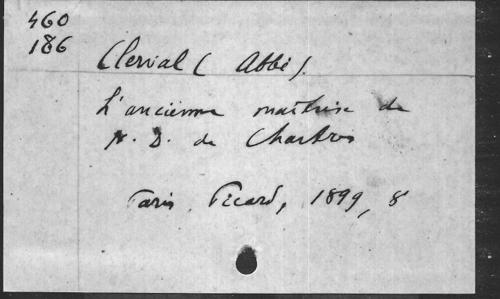 460
186
Clerval (Abbé).
L'ancienne maîtrise de
N. D. de Chartres
Paris, Picard, 1899, 8